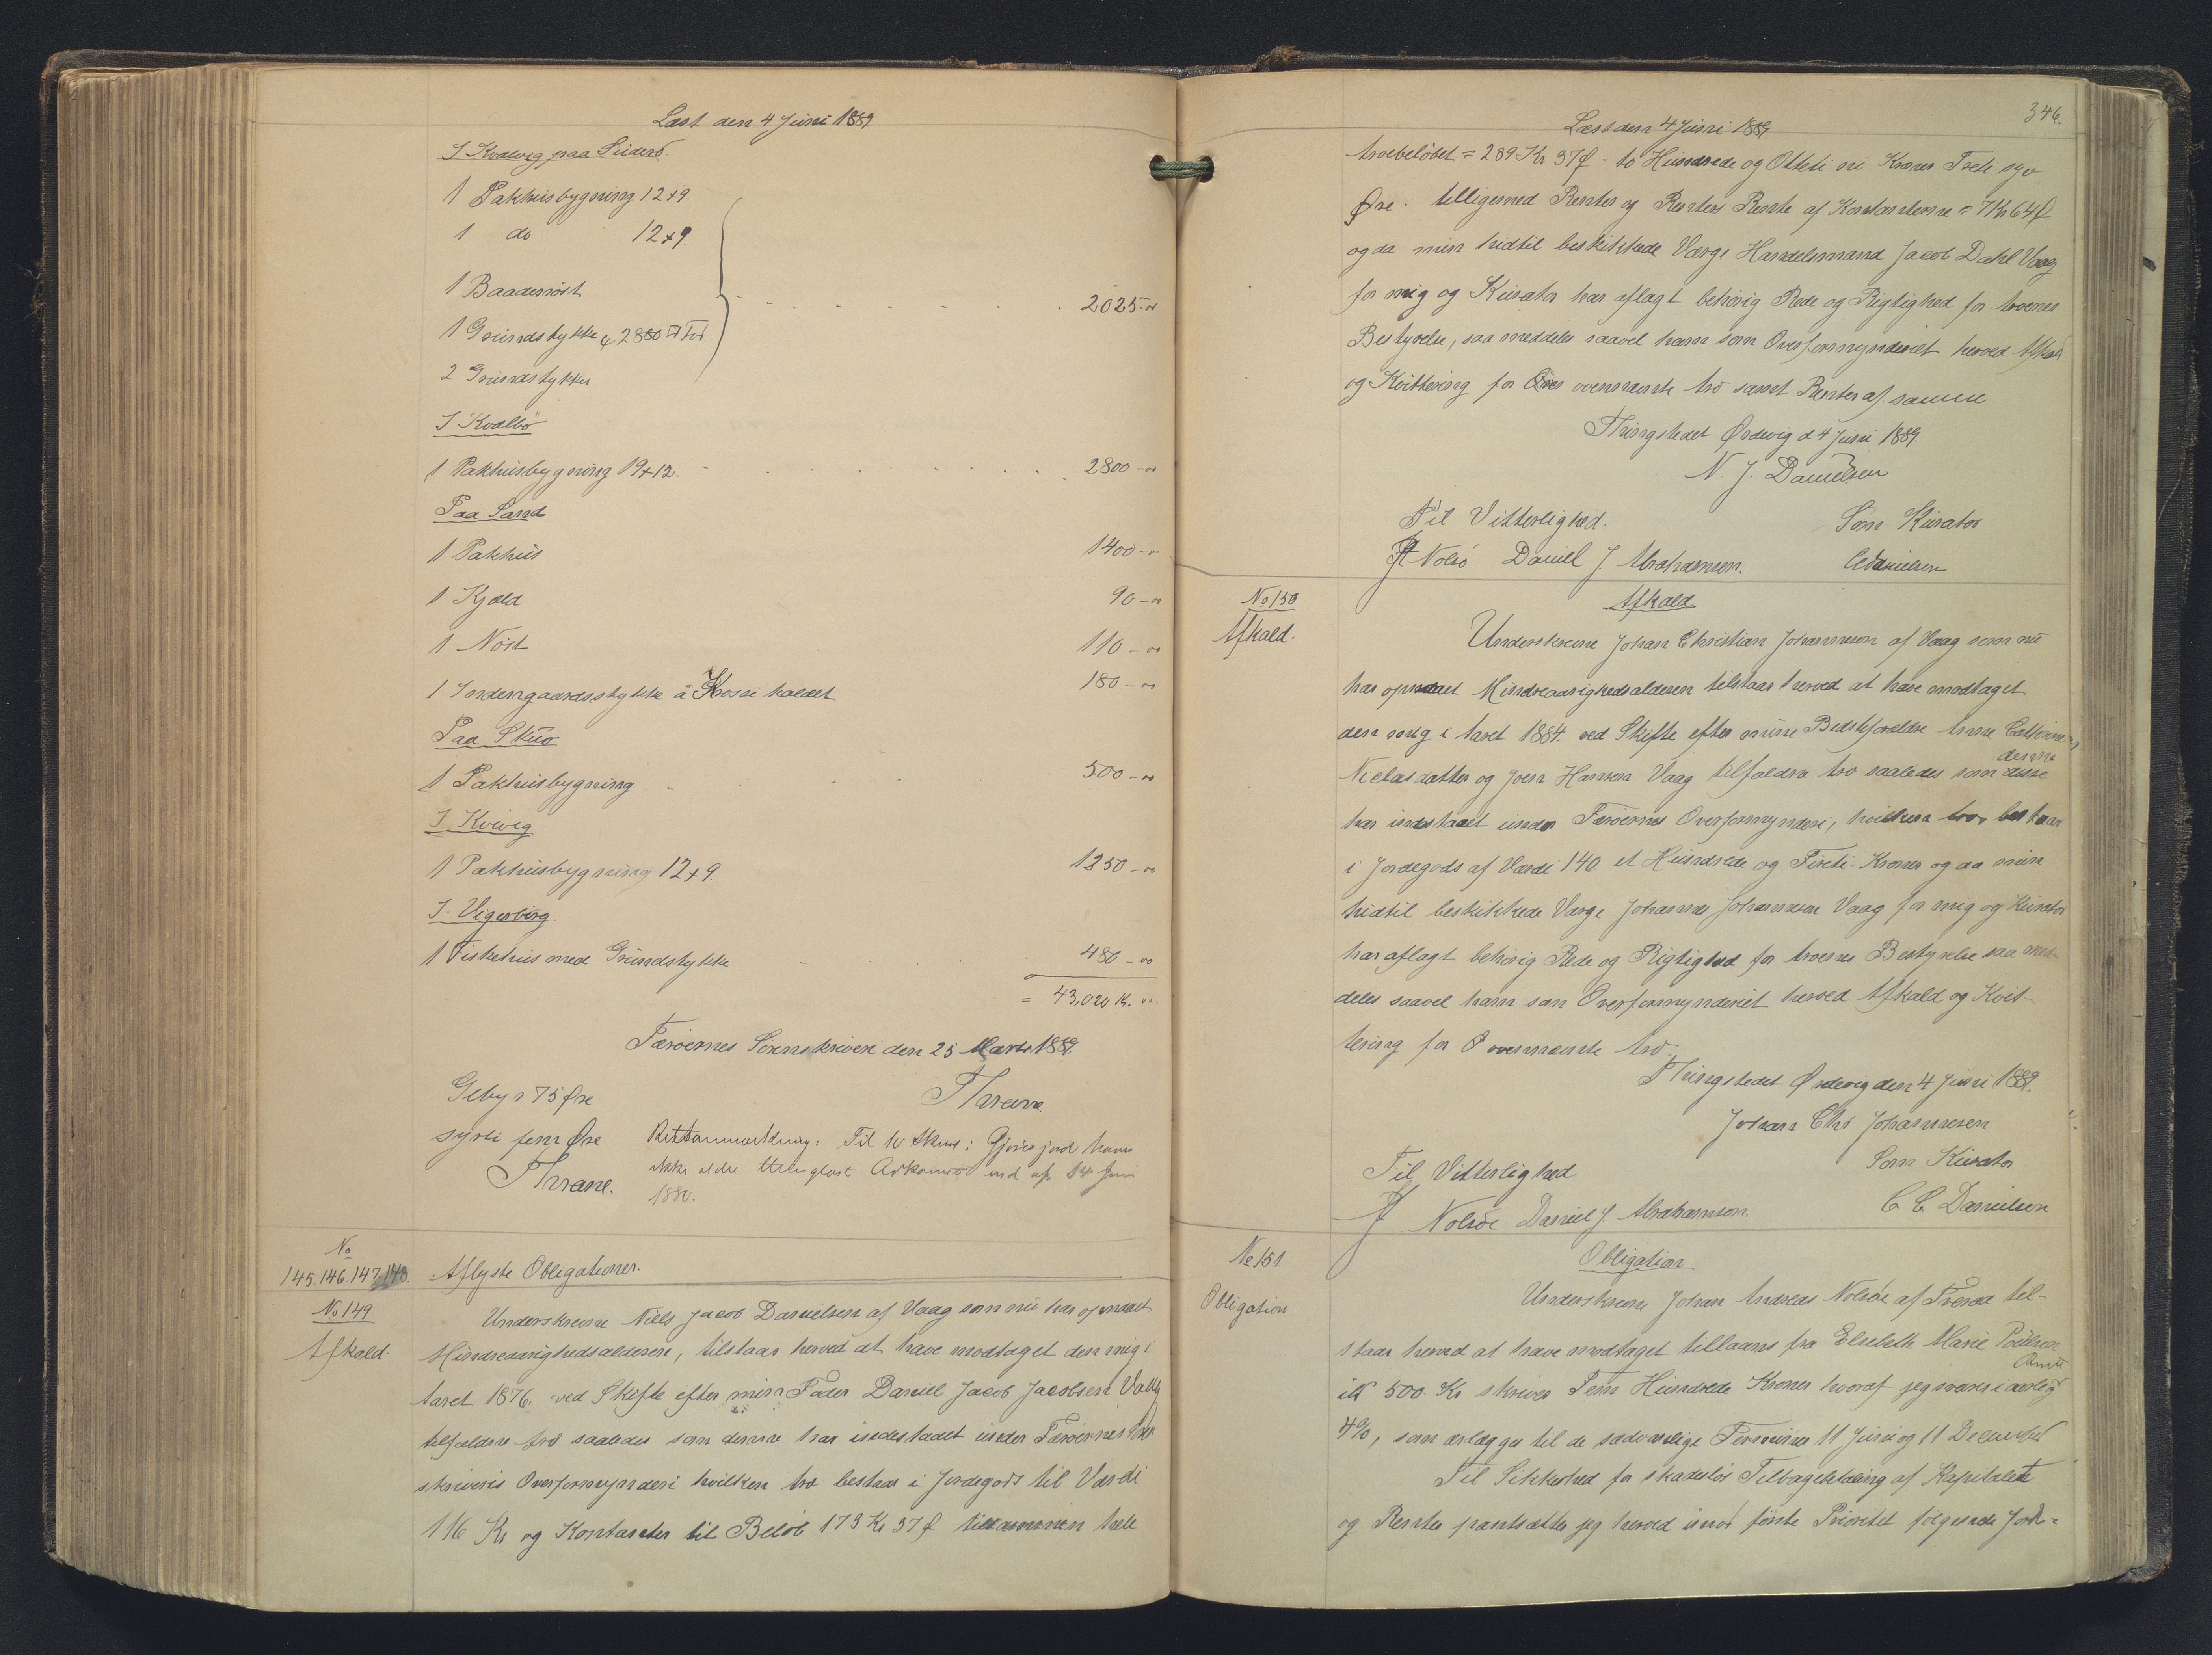 Læst den 4 Juni 1889
I Kvalvig paa Suderö.
1 Pakhusbygning 12x9.
1 do 12x9.
1 Baadenöst
2025-"
1 Grundstykke 2880 □ Fod
2 Grundstykker
I Kvalbö
1 Pakhusbygning 19x12. 2800-"
Paa Sand
1 Pakhus 1400-"
1 Kjæld 90-"
1 Nöst 110-"
1 Indengaardsstykke á Krossi kaldet 180-"
Paa Skuö
1 Pakhusbygning 500-"
I Kvivig
1 Pakhusbygning 12x9. 1250-"
I Vigerbirg
1 Fiskehus med Grundstykke 480-"
= 43,020 K. "
Færöernes Sorenskriveri den 25 Marts 1889
Gebyr 75 Øre Thrane
syvti fem Øre Retsanmærkning: Til 10 Skind: haves
ikke ældre thinglæst Adkomst end af 14 Juni
Thrane. 1880.
No
145.146.147.148. Aflyste Obligationer.
No 149 Underskrevne Niels Jacob Danielsen af Vaag som nu har opnaaet
Afkald Mindreaarighedsalderen, tilstaar herved at have modtaget den mig i
Aaret 1876. ved Skifte efter min Fader Daniel Jacob Jacobsen Vaag
tilfaldne Arv saaledes som denne har indestaaet under Færöernes
skriveris Overformynderi hvilken Arv bestaar i Jordegods til Værdi
116 Kr og Kontanter til Belöb 173 Kr 37 ø tilsammen hele
346.
Læst den 4 Juni 1889
Arvebelöbet = 289 Kr 37 ø - to Hundrede og Otteti ni Kroner Treti syv
Øre. tilligemed Renter og Renters Rente af Kontanterne = 7 Kr 64 ø
og da min hidtil beskikkede Værge Handelsmand Jacob Dahl Vaag
for mig og Kurator har aflagt behörig Rede og Rigtighed for Arvens
Bestyrelse, saa meddeles saavel ham som Overformynderiet herved Afkald
og Kvittering for ovennævnte Arv samt Renter af samme
Thingstedet Ördevig d 4 Juni 1889.
N. J. Danielsen
Til Vitterlighed. Som Kurator
Nolsö Daniel J. Abrahamsen. CDanielsen
No 150 Afkald
Afkald. Underskrevne Johan Christian Johannesen af Vaag som nu
har opnaaet Mindreaarighedsalderen tilstaar herved at have modtaget
den mig i Aaret 1884. ved Skifte efter mine Bedsteforældre Anne Cathrine
Niclasdatter og Joen Hansen Vaag tilfaldne Arv saaledes som disse
denne
har indestaaet under Færöernes Overformynderi, hvilken Arv bestaar
i Jordegods af Værdi 140 et Hundrede og Fireti Kroner og da min
hidtil beskikkede Værge Johannes Johannesen Vaag for mig og Kurator
har aflagt behörig Rede og Rigtighed for Arvens Bestyrelse saa med-
deles saavel ham som Overformynderiet herved Afkald og Kvit-
tering for ovennævnte Arv.
Thingstedet Ördevig den 4 Juni 1889.
Johan Chr Johannesen
Til Vitterlighed Som Kurator
Nolsöe Daniel J. Abrahamsen. C C Danielsen
No 151 Obligation
Obligation Underskrevne Johan Andreas Nolsöe af Tveraa til-
staar herved at have modtaget tillaans fra Elsebeth Marie
ik 500 Kr skriver Fem Hundrede Kroner hvoraf jeg svarer i aarlig
4%, som erlægges til de sædvanlige Terminer 11 Juni og 11 December
Til Sikkerhed for skadeslös Tilbagebetaling af Kapitalen
og Renter pantsætter jeg herved under förste Prioritet fölgende Jorde-